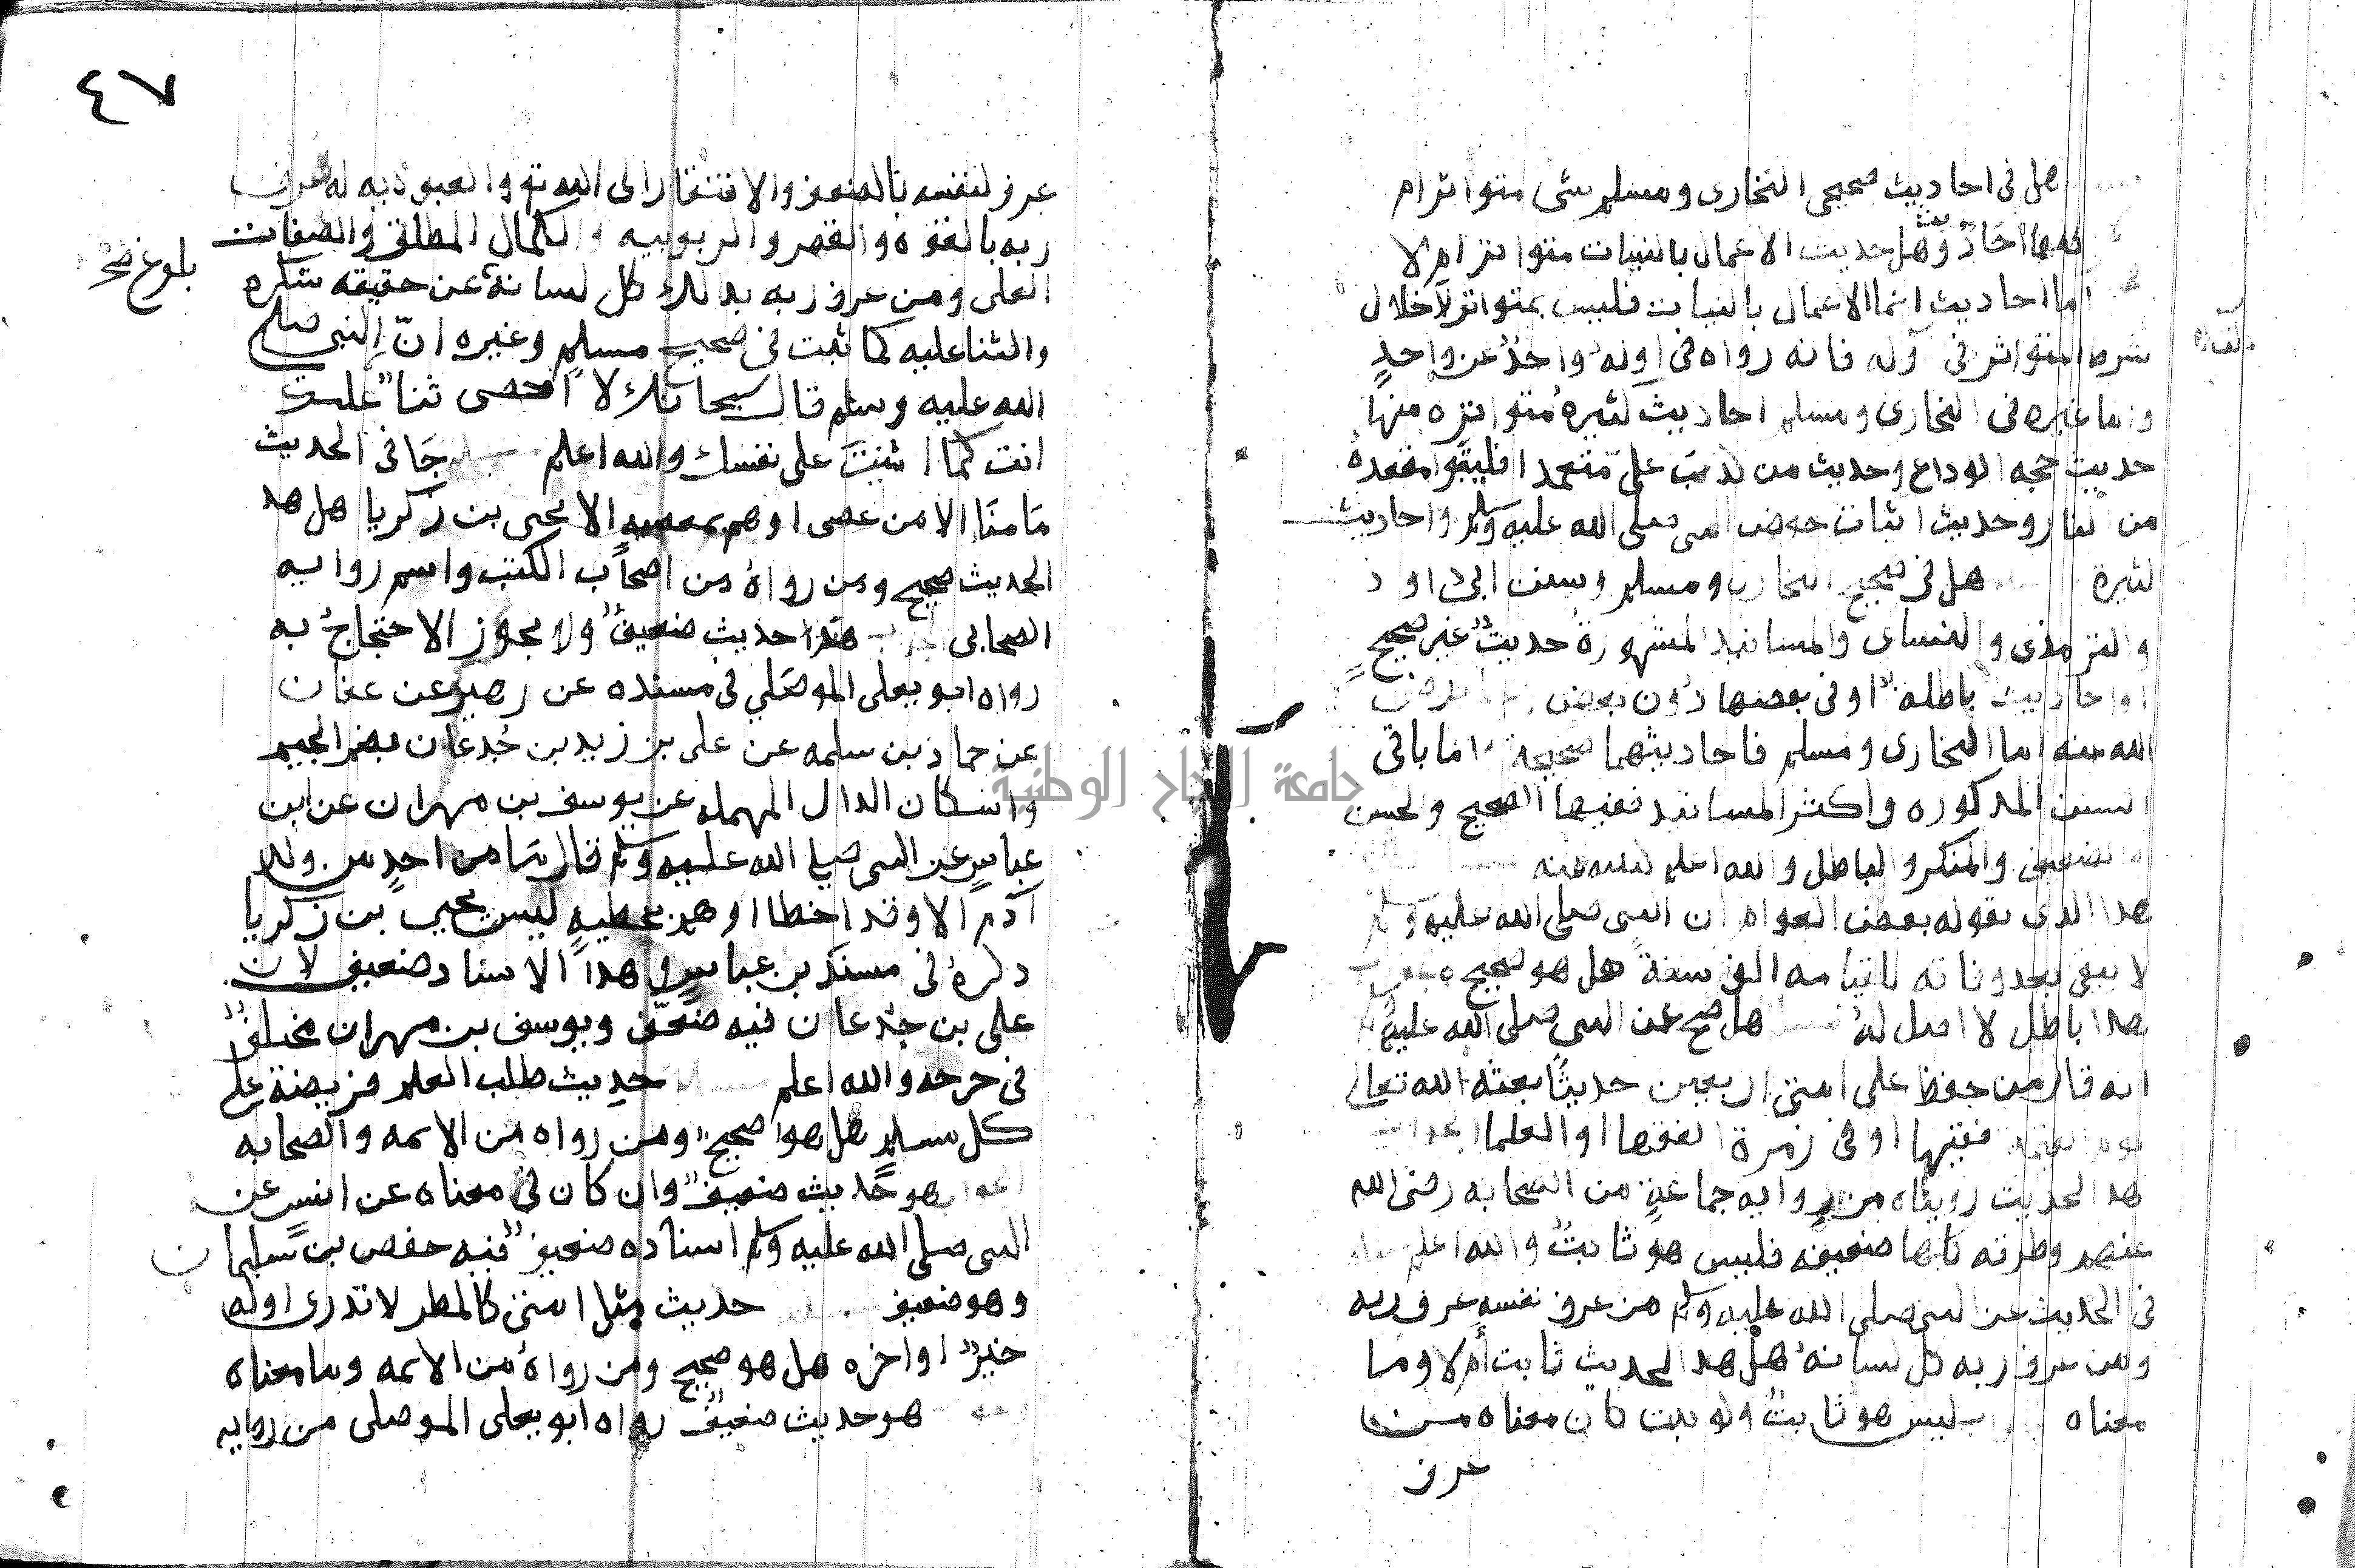 هل فى احاديث صحيحى البخارى ومسلم شى متواتر ام
كلها احاد وهل حديث الاعمال بالنيات متواتر ام لا
اما احاديث انما الاعمال بالنيات فليس بمتواتر لاختلال
شرط المتواتر فى اوله فانه رواه فى اوله واحد عن واحد
واما غيره فى البخارى ومسلم احاديث كثيره متواتره منها
حديث حجه الوداع وحديث من كذب على متعمدا فليتبوا مقعده
من النار وحديث اثبات حوض النبى صلى الله عليه وسلم واحاديث
كثيرة هل فى صحيح البخارى ومسلم وسنن ابى داود
والترمذى والنساى والمسانيد المشهورة حديث غير صحيح
او احاديث باطله او فى بعضها دون بعض رضى
الله عنه اما البخارى ومسلم فاحاديثهما صحيحه واما باقى
السنن المذكوره واكثر المسانيد ففيها الصحيح والحسن
والضعيف والمنكر والباطل والله اعلم
هذا الذى يقوله بعض العوام ان النبى صلى الله عليه وسلم
لا يبقى بعد وفاته للقيامه الف سنة هل هو صحيح
هذا باطل لا اصل له هل صح عن النبى صلى الله عليه
انه قال من حفظ على امتى اربعين حديثا بعثه الله تعالى
يوم القيمه فقيها او فى زمرة الفقها او العلما
هذا الحديث رويناه من روايه جماعة من الصحابه رضى الله
عنهم وطرقه كلها ضعيفه فليس هو ثابت والله اعلم
فى الحديث عن النبى صلى الله عليه وسلم من عرف نفسه عرف ربه
ومن عرف ربه كل لسانه هل هذا الحديث ثابت أم لا وما
معناه ليس هو ثابت ولو ثبت كان معناه من
عرف
٤٧
عرف نفسه بالضعف والافتقار الى الله تع والعبوديه له عرف
ربه بالقوه والقهر والربوبيه والكمال المطلق والصفات
بلوغ صح
العلى ومن عرف ربه بذلك كل لسانه عن حقيقه شكره
والثنا عليه كما ثبت فى صحيح مسلم وغيره ان النبى صلى
الله عليه وسلم قال سبحانك لا احصى ثنا عليك
انت كما اثنيت على نفسك والله اعلم جا فى الحديث
ما منا الا من عصى او هم بمعصيه الا يحيى بن زكريا هل هذ
الحديث صحيح ومن رواه من اصحاب الكتب واسم راويه
الصحابى هذا حديث ضعيف ولا يجوز الاحتجاج به
رواه ابو يعلى الموصلي فى مسنده عن زهير عن عفان
عن حماد بن سلمه عن على بن زيد بن جدعان بضم الجيم
واسكان الدال المهمله عن يوسف بن مهران عن ابن
عباس عن النبى صلى الله عليه وسلم قال ما من احد من ولد
آدم الا وقد اخطا او هم بخطيه ليس يحيى بن زكريا
ذكره فى مسند بن عباس وهذا الاسناد ضعيف لان
على بن جدعان فيه ضعف ويوسف بن مهران مختلف
فى جرحه والله اعلم حديث طلب العلم فريضة على
كل مسلم هل هو صحيح ومن رواه من الايمه والصحابه
هو حديث ضعيف وان كان فى معناه عن انس عن
النبى صلى الله عليه وسلم اسناده ضعيف فيه حفص بن سليمان
وهو ضعيف حديث مثل امتى كالمطر لا تدرى اوله
خير او اخره هل هو صحيح ومن رواه من الايمه وما معناه
هو حديث ضعيف رواه ابو يعلى الموصلى من روايه